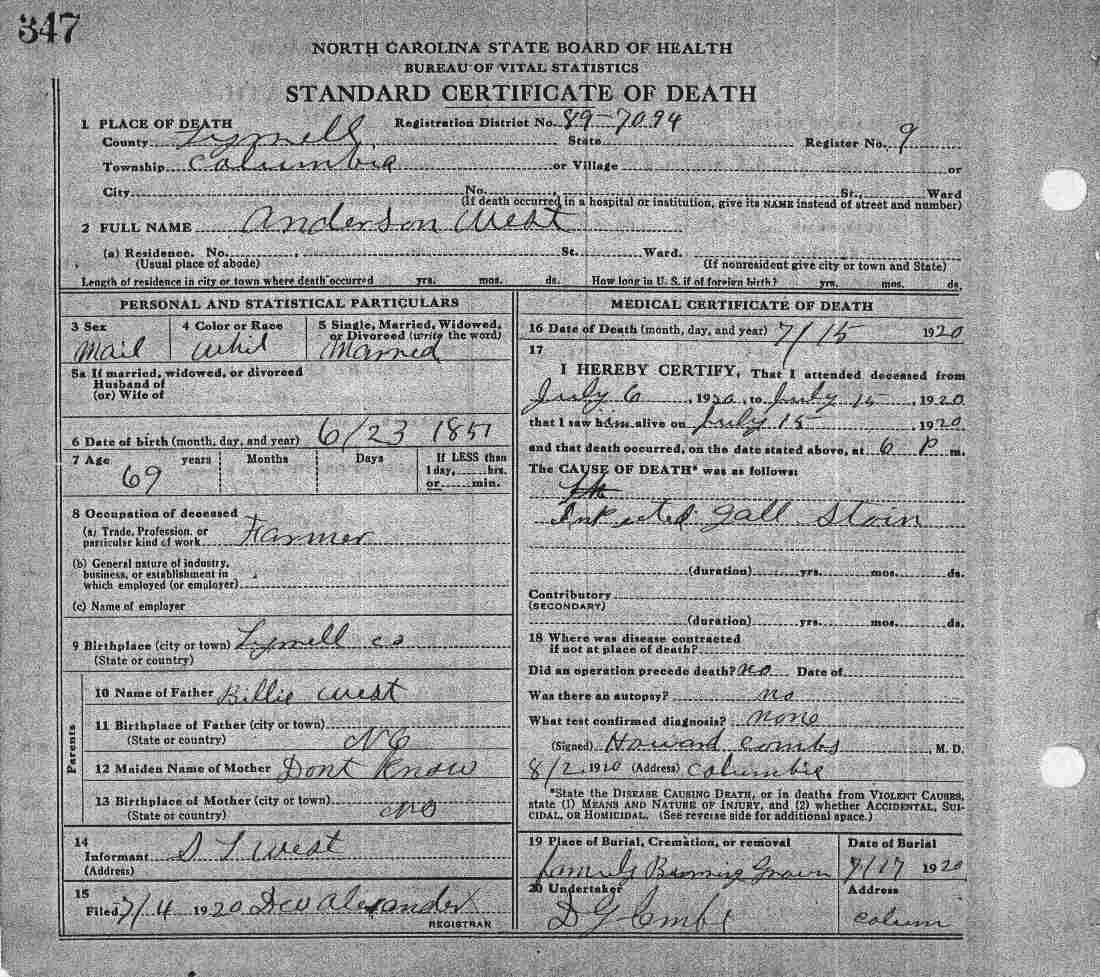 347
NORTH CAROLINA STATE BOARD OF HEALTH
BUREAU OF VITAL STATISTICS
STANDARD CERTIFICATE OF DEATH
1 PLACE OF DEATH Registration District No. 89-7094
County Tyrrell State Register No. 9
Township Columbia or Village or
City No. St., Ward
(If death occurred in a hospital or institution, give its NAME instead of street and number)
2 FULL NAME Anderson West
(a) Residence. No. St. Ward.
(Usual place of abode) (If nonresident give city or town and State)
Length of residence in city or town where death occurred yrs. mos. ds. How long in U. S. if of foreign birth? yrs. mos. ds.
PERSONAL AND STATISTICAL PARTICULARS
3 Sex 4 Color or Race 5 Single, Married, Widowed,
or Divorced (write the word)
Mail Whit Married
5a If married, widowed, or divorced
Husband of
(or) Wife of
6 Date of birth (month, day, and year) 6/23 1851
7 Age years Months Days If LESS than
69 1 day, hrs.
or min.
8 Occupation of deceased
(a) Trade, Profession, or
particular kind of work Farmer
(b) General nature of industry,
business, or establishment in
which employed (or employer)
(c) Name of employer
9 Birthplace (city or town) Tyrrell co
(State or country)
Parents
10 Name of Father Billie West
11 Birthplace of Father (city or town)
(State or country) NC
12 Maiden Name of Mother Dont Know
13 Birthplace of Mother (city or town)
(State or country) NC
14
Informant West
(Address)
15
Filed 1920 Alexander
REGISTRAR
MEDICAL CERTIFICATE OF DEATH
16 Date of Death (month, day, and year) 7/15 1920
17
I HEREBY CERTIFY, That I attended deceased from
July 6, 1920, to July 15, 1920
that I saw him alive on July 15 1920
and that death occurred, on the date stated above, at 6 P m.
The CAUSE OF DEATH* was as follows:
gall Stoin
(duration) yrs. mos. ds.
Contributory
(SECONDARY)
(duration) yrs. mos. ds.
18 Where was disease contracted
if not at place of death?
Did an operation precede death? no Date of
Was there an autopsy? no
What test confirmed diagnosis? none
(Signed) Howard Combs, M. D.
8/2, 1920 (Address) Columbia
*State the DISEASE CAUSING DEATH, or in deaths from VIOLENT CAUSES,
state (1) MEANS AND NATURE OF INJURY, and (2) whether ACCIDENTAL, SUI-
CIDAL, OR HOMICIDAL. (See reverse side for additional space.)
19 Place of Burial, Cremation, or removal Date of Burial
7/17 1920
20 Undertaker Address
D G Colum